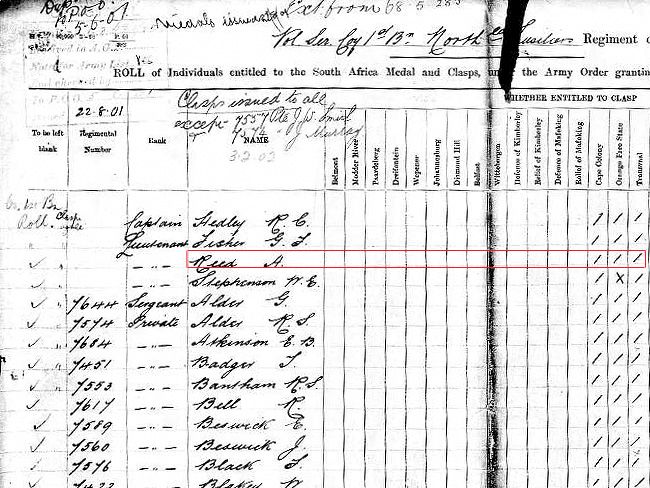 22-8-01
Medals issued Ext. from 68/5/285
5-6-01
Vol Ser. Coy 1st Bn North Fusiliers Regiment
ROLL of Individuals entitled to the South Africa Medal and Clasps, under the Army Order granting
WHETHER ENTITLED TO CLASP
Clasps issued to all
except 7557 Pte J.
7574 " J Murray
3-2-03
To be left blank
Regimental Number
Rank
NAME
Belmont
Modder River
Paardeberg
Driefontein
Wepener
Johannesburg
Diamond Hill
Belfast
Wittebergen
Defence of Kimberley
Relief of Kimberley
Defence of Mafeking
Relief of Mafeking
Cape Colony
Orange Free State
Transvaal
Roll.
Captain Hedley R. C. / / /
Lieutenant Fisher G. T. / / /
✓ " -"- Reed A. / / /
✓ " -"- Stephenson W. E. / x /
✓ " 7644 Sergeant Alder G. / / /
✓ " 7574 Private Alder R. S. / / /
✓ " 7684 -"- Atkinson E. B. / / /
✓ " 7451 -"- Badger T. / / /
✓ " 7553 -"- Bantham R. S. / / /
✓ " 7617 -"- Bell R. / / /
✓ 7589 -"- Beswick E. / / /
✓ 7560 -"- Beswick J. / / /
7576 -"- Black T. / / /
7422 -"- Blakey W. / / /